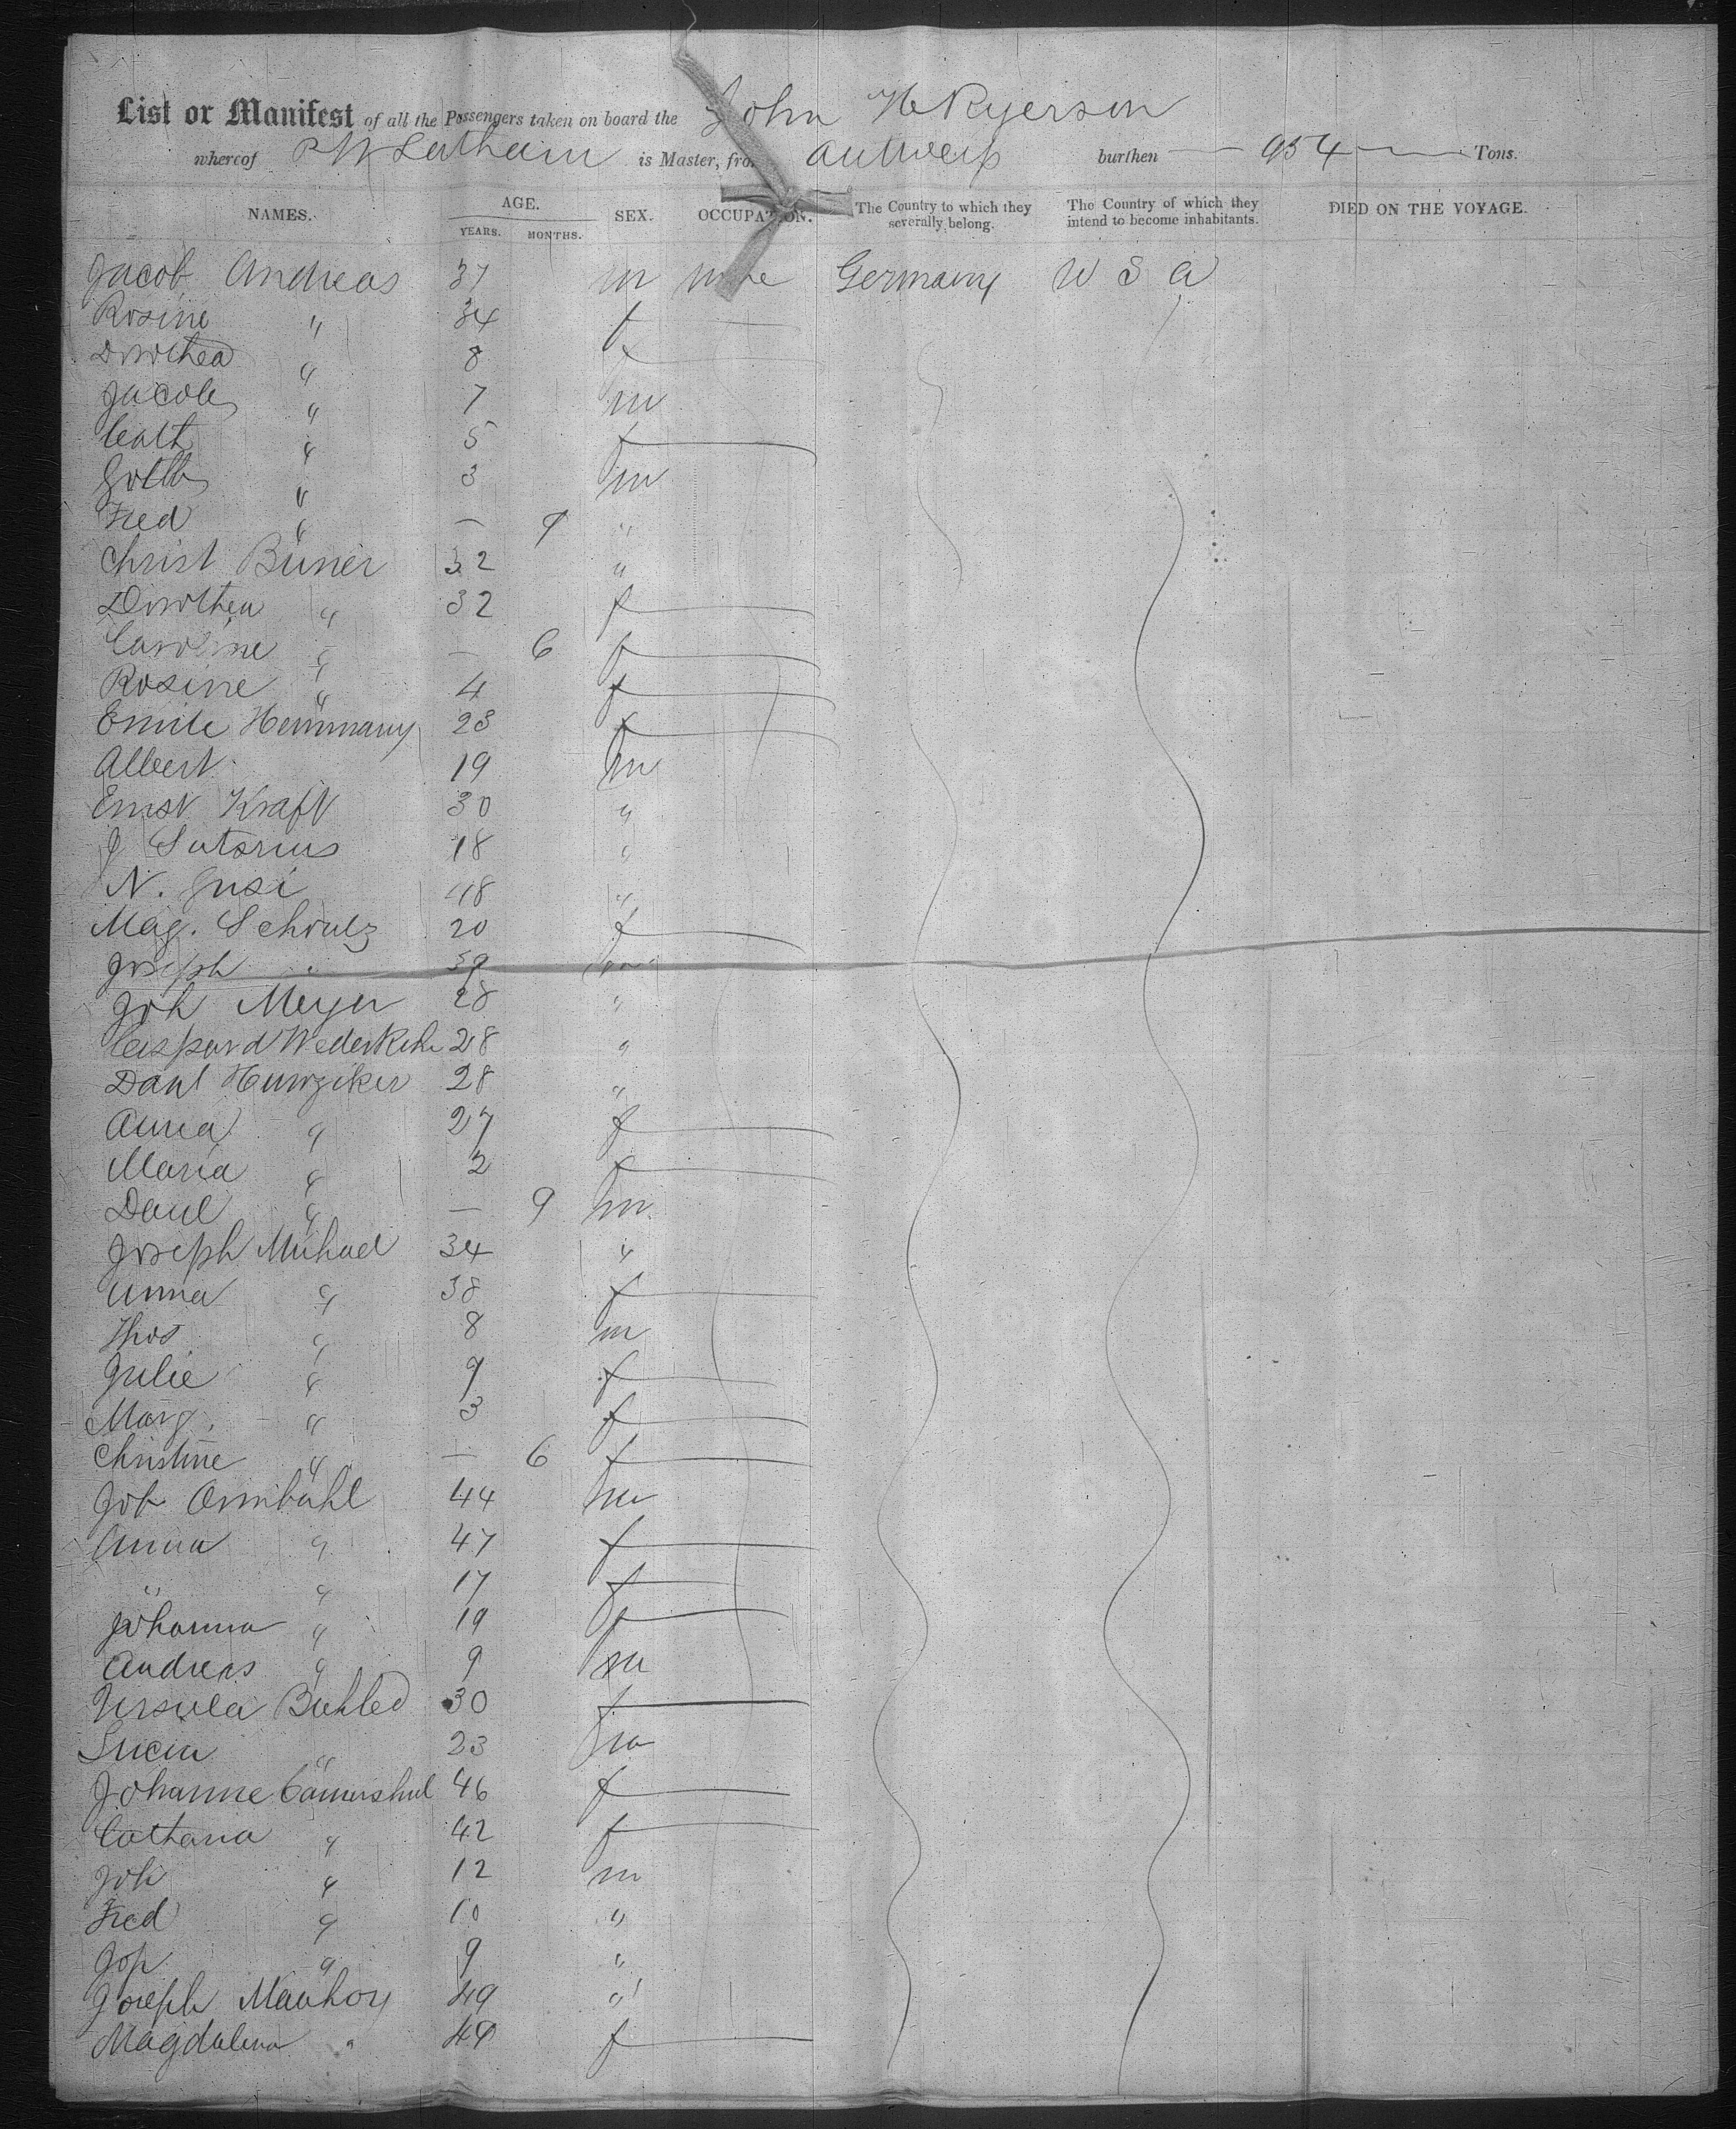 List or Manifest of all the Passengers taken on board the John H Ryerson
whereof Latham is Master, from Antwerp burthen — 954 — Tons.
NAMES. AGE. YEARS. MONTHS. SEX. OCCUPATION. The Country to which they severally belong. The Country of which they intend to become inhabitants. DIED ON THE VOYAGE.
Jacob Andreas 37 m none Germany U S A
Rosine " 34 f
Dorothea " 8 f
Jacob " 7 m
" 5 f
Gottb " 3 m
Fred " — 9 "
Christ Büner 32 "
Dorothea " 32 f
Caroline " — 6 f
Rosine " 4 f
Emile 23 f
Albert 19 m
Ernst Kraft 30 "
J Sutorius 18 "
N. Gusi 48 "
Mag. Schoulz 20 f
Joseph " 59 m
Joh Meyer 28 "
Caspard Wederkehr 28 "
Danl Hunziker 28 "
Anna " 27 f
Maria " 2 f
Danl " — 9 m
Joseph Michael 34 "
Anna " 38 f
Thos " 8 m
Julie " 9 f
Marg. " 3 f
Christine " — 6 f
Joh 44 m
Anna " 47 f
" " 17 f
Johanna " 19 f
Andreas " 9 m
Ursula 30 f
Lucia " 23 m
Johanne 46 f
Cathana " 42 f
Joh " 12 m
Fred " 10 "
Jos " 9 "
Joseph 49 "
Magdalena " 49 f